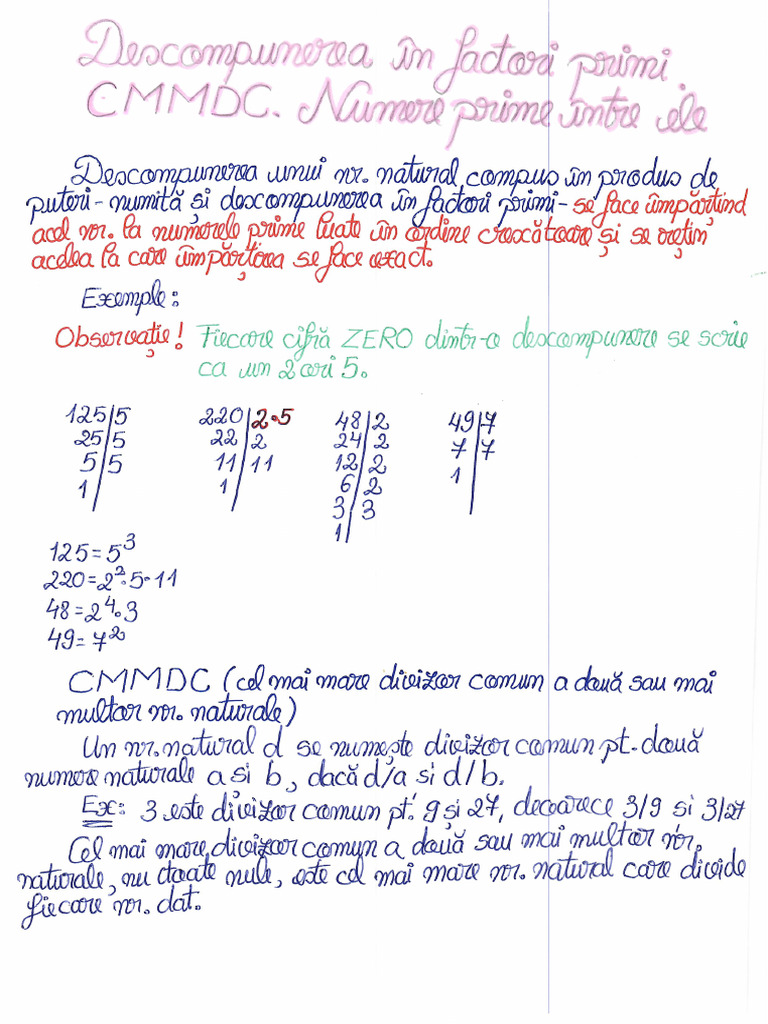 Descompunerea în factori primi
CMMDC. Numere prime între ele
Descompunerea unui nr. natural compus în produs de
puteri-numită și descompunerea în factori primi-se face împărțind
acel nr. la numerele prime luate în ordine crescătoare și se rețin
acelea la care împărțirea se face exact.
Exemple:
Observație! Fiecare cifră ZERO dintr-o descompunere se scrie
ca un 2 ori 5.
125|5 220|2•5 48|2 49|7
25|5 22|2 24|2 7|7
5|5 11|11 12|2 1|
1| 1| 6|2
3|3
1|
125=5³
220=2²·5·11
48=2⁴·3
49=7²
CMMDC (cel mai mare divizor comun a două sau mai
multor nr. naturale)
Un nr. natural d se numește divizor comun pt. două
numere naturale a si b, dacă d/a si d/b.
Ex: 3 este divizor comun pt. 9 și 27, deoarece 3/9 si 3/27
Cel mai mare divizor comun a două sau mai multor nr.
naturale, nu toate nule, este cel mai mare nr. natural care divide
fiecare nr. dat.